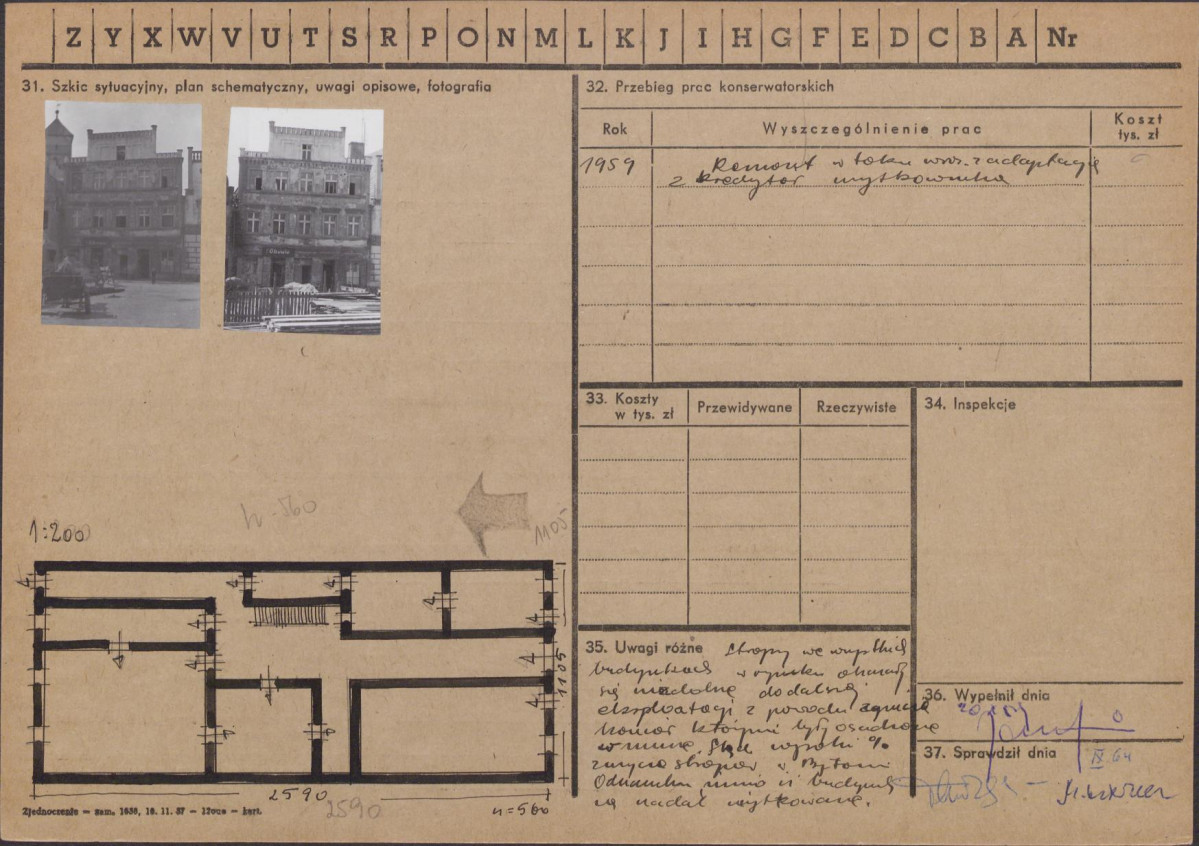 Z Y X W V U T S R P O N M L K J I H G F E D C B A Nr
31. Szkic sytuacyjny, plan schematyczny, uwagi opisowe, fotografia
1:200
h-560
1105
1105
2590
2590
h=560
Zjednoczenie — zam. 1656, 16. 11. 57 — 12000 — kart.
32. Przebieg prac konserwatorskich
Rok
Wyszczególnienie prac
Koszt
tys. zł
1959
Remont w toku wraz z adaptacją
z kredytów użytkownika
33. Koszty
w tys. zł
Przewidywane
Rzeczywiste
34. Inspekcje
35. Uwagi różne Stropy we wszystkich
budynkach w rynku okazały
się niezdolne do dalszej
eksploatacji z powodu
którymi były osadzone
w murze.
stropów w Bytomiu
Odrzańskim mimo iż budynki
są nadal użytkowane.
36. Wypełnił dnia
37. Sprawdził dnia
IX 64